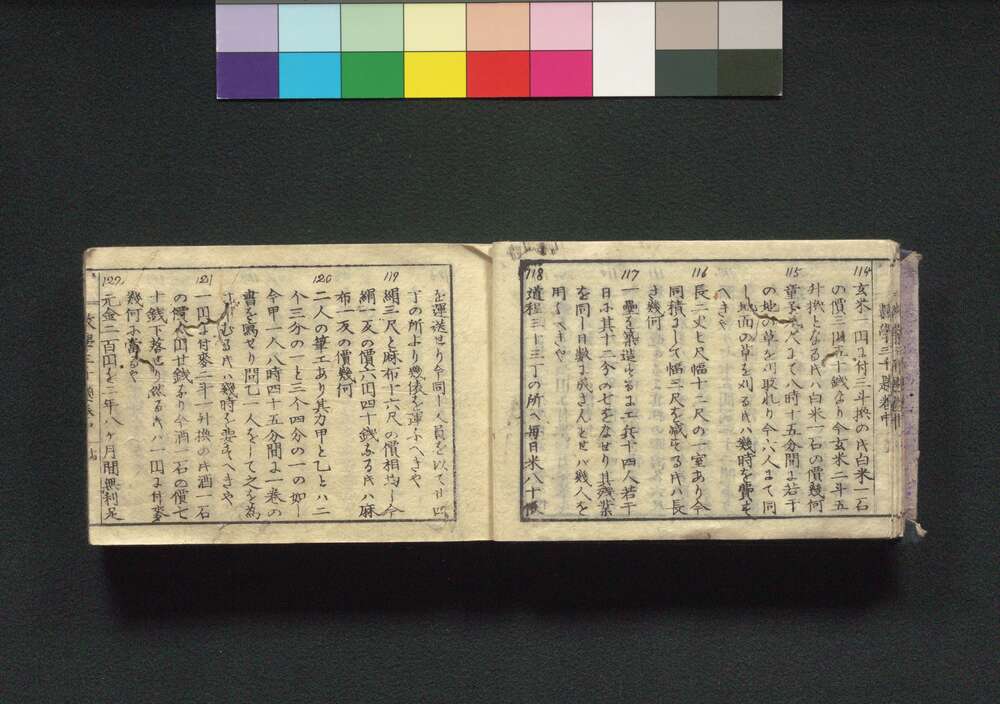 114
玄米一円に付三斗換の氏白米一石
の價三円五十銭なり今玄米二斗五
升換となる氏ハ白米一石の價幾何
115
童子八人まて八時十五分間よ若干
の地の草を刈取れり今六人まて同
し地面の草を刈る氏ハ幾時を費す
へきや
116
長二丈七尺幅十二尺の一室あり今
同積にして幅三尺を減する氏ハ長
さ幾何
117
一壘を築造するに工兵十四人若干
日に其十二分の七をなせり其殘業
を同し日数に成さんとせハ幾人を
用うへきや
118
道程三十三丁の所へ毎日米八十俵
を運送せり今同し人員を以て廿四
丁の所より幾俵を運ふへきや
119
絹三尺と麻布十六尺の價相均し今
絹一反の價六円四十銭なる氏ハ麻
布一反の價幾何
120
二人の筆工あり其力甲と乙とハ二
个三分の一と三个四分の一の如し
今甲一人八時四十五分間よ一巻の
書を寫せり問乙一人をして之を為
さしむる氏ハ幾時を要すへきや
121
一円に付麥二斗一升換の氏酒一石
の價八円廿銭なり今酒一石の價七
十銭下落せり然る氏ハ一円よ付麥
幾何に當るや
122
元金二百円を二年八ヶ月間無利足